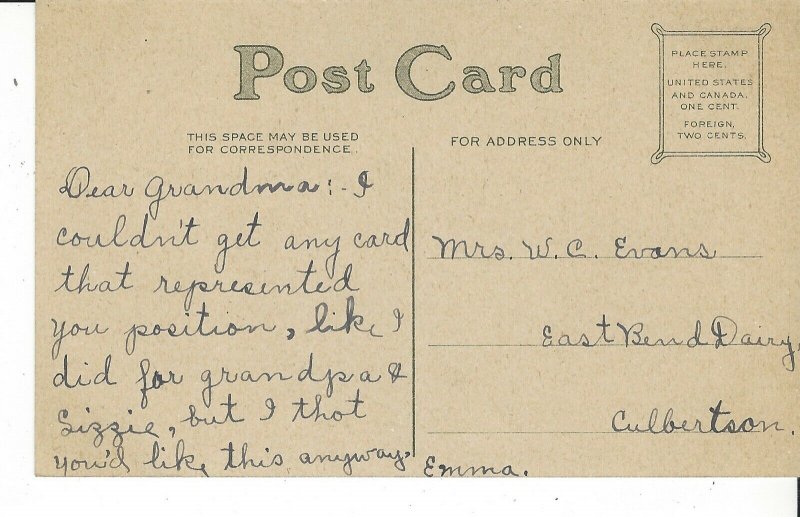 Post Card
PLACE STAMP
HERE.
UNITED STATES
AND CANADA,
ONE CENT.
FOREIGN,
TWO CENTS.
THIS SPACE MAY BE USED
FOR CORRESPONDENCE.
FOR ADDRESS ONLY
Dear Grandma:- I
couldn't get any card
that represented
you position, like I
did for grandpa &
Lizzie, but I thot
you'd like this anyway.
Emma.
Mrs. W. C. Evans
East Bend Dairy,
Culbertson.